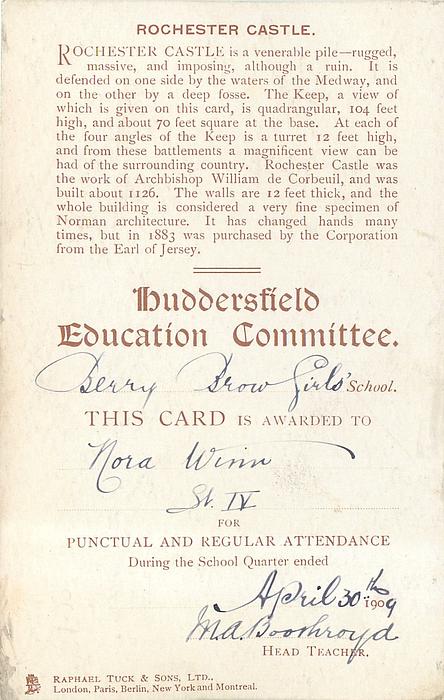 ROCHESTER CASTLE.
ROCHESTER CASTLE is a venerable pile—rugged,
massive, and imposing, although a ruin. It is
defended on one side by the waters of the Medway, and
on the other by a deep fosse. The Keep, a view of
which is given on this card, is quadrangular, 104 feet
high, and about 70 feet square at the base. At each of
the four angles of the Keep is a turret 12 feet high,
and from these battlements a magnificent view can be
had of the surrounding country. Rochester Castle was
the work of Archbishop William de Corbeuil, and was
built about 1126. The walls are 12 feet thick, and the
whole building is considered a very fine specimen of
Norman architecture. It has changed hands many
times, but in 1883 was purchased by the Corporation
from the Earl of Jersey.
Huddersfield
Education Committee.
Berry Brow Girls' School.
THIS CARD IS AWARDED TO
Nora Winn
St. IV
FOR
PUNCTUAL AND REGULAR ATTENDANCE
During the School Quarter ended
April 30th 1909
M.A. Boothroyd
HEAD TEACHER.
RAPHAEL TUCK & SONS, LTD.,
London, Paris, Berlin, New York and Montreal.